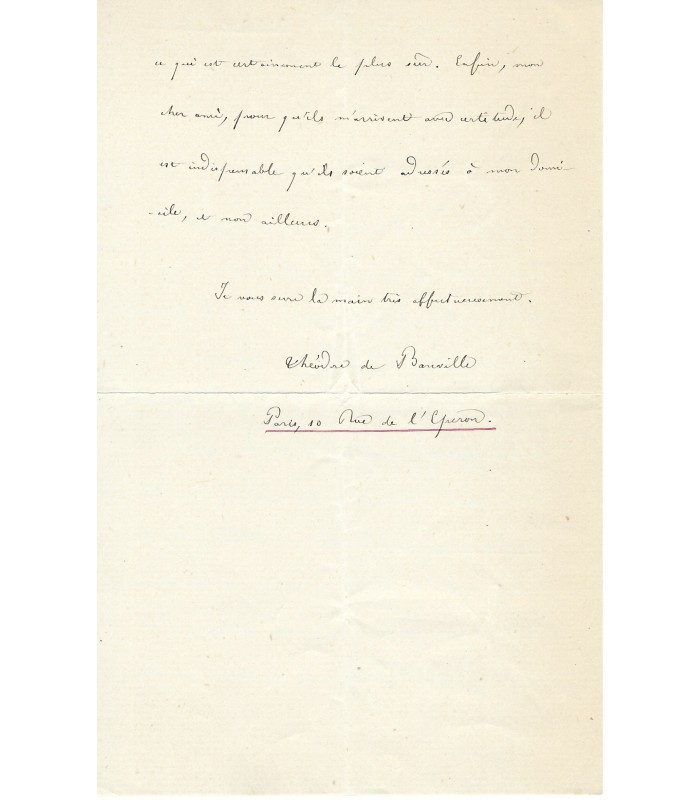 ce qui est certainement le plus sûr. Enfin, mon
cher ami, pour qu'ils m'arrivent avec certitude, il
est indispensable qu'ils soient adressés à mon domi-
-cile, et non ailleurs.
Je vous serre la main très affectueusement.
Théodore de Banville
Paris, 10 Rue de l'Eperon.